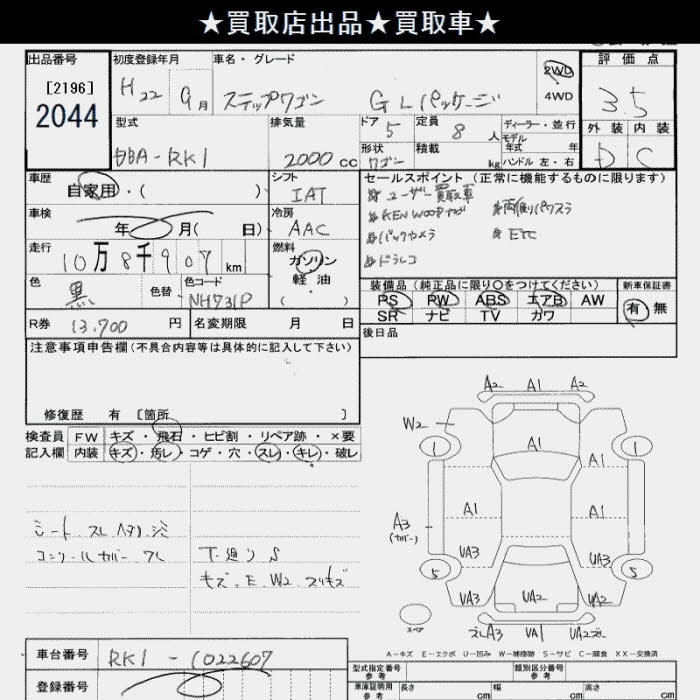 ★買取店出品★買取車★
出品番号 初度登録年月 車名・グレード 2WD 評価点
[2196] H22 9月 ステップワゴン GLパッケージ 4WD 3.5
2044 型式 排気量 ドア 定員 ディーラー・並行 外装 内装
DBA-RK1 2000cc 5 8人 モデル年式 年 D C
形状 ワゴン 積載 kg ハンドル 左・右
車歴 自家用・( ) シフト IAT セールスポイント(正常に機能するものに限ります)
ユーザー買取車 両側パワスラ
車検 年 月( 日) 冷房 AAC KENWOODナビ ETC
バックカメラ
走行 10万8千907km 燃料 ガソリン ドラレコ
軽・油
( )
色 黒 色替 色コード NH731P 装備品(純正品に限り○をつけてください) 新車保証書
PS PW ABS エアB AW 有 無
SR ナビ TV カワ
R券 13,700円 名変期限 月 日 後日品
注意事項申告欄(不具合内容等は具体的に記入して下さい)
修復歴 有 [箇所 ]
検査員 FW キズ・飛石・ヒビ割・リペア跡・×要
記入欄 内装 キズ・汚レ・コゲ・穴・スレ・キレ・破レ
シート スレ ヘタリ シミ
コンソールカバー ワレ
下廻り S
キズ、E、W2、スリキズ
A2 A1 A2
W2
1 A1 1
A1
A3 A1 A1
(カバー)
UA3 UA3
5 5
UA3 UA2 UA2
スペア
ズレA3 UA1 UA2ズレ
A-キズ E-エクボ U-凹み W-補修跡 S-サビ C-腐食 XX-交換済
車台番号 RK1-1022607
登録番号
型式指定番号 参考 類別区分番号 参考
車庫証明用 参考 長さ cm 幅 cm 高さ cm